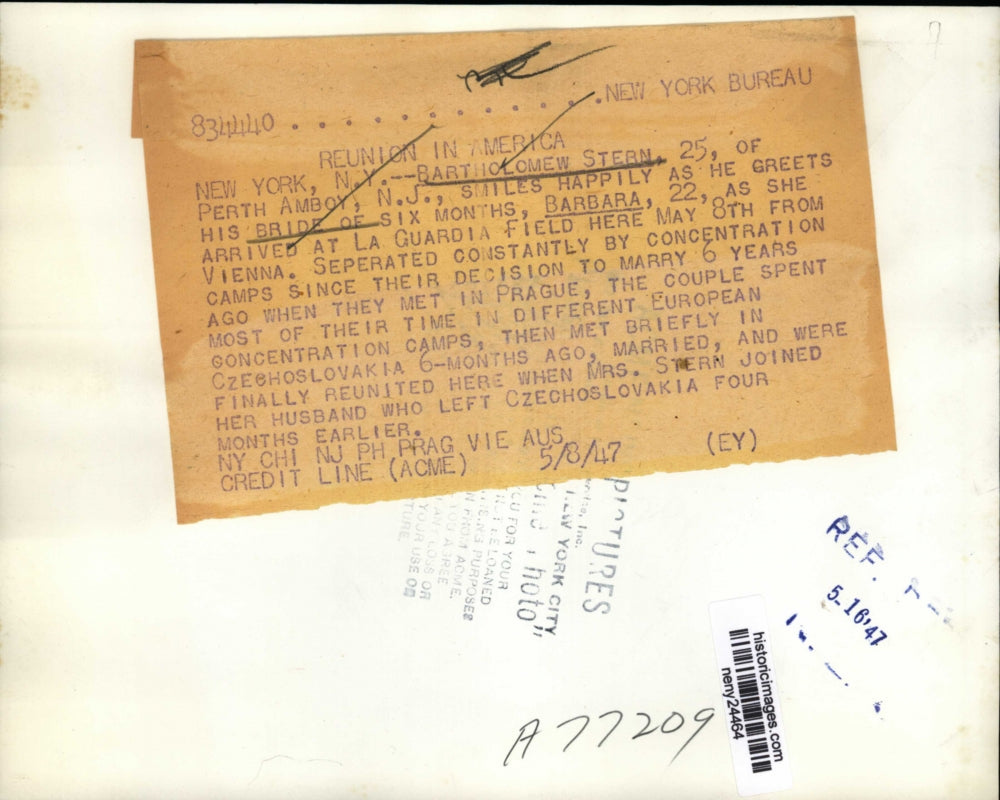 834440 . . . . . . . . . . . . NEW YORK BUREAU
REUNION IN AMERICA
NEW YORK, N.Y.--BARTHOLOMEW STERN, 25, OF
PERTH AMBOY, N.J., SMILES HAPPILY AS HE GREETS
HIS BRIDE OF SIX MONTHS, BARBARA, 22, AS SHE
ARRIVED AT LA GUARDIA FIELD HERE MAY 8TH FROM
VIENNA. SEPERATED CONSTANTLY BY CONCENTRATION
CAMPS SINCE THEIR DECISION TO MARRY 6 YEARS
AGO WHEN THEY MET IN PRAGUE, THE COUPLE SPENT
MOST OF THEIR TIME IN DIFFERENT EUROPEAN
CONCENTRATION CAMPS, THEN MET BRIEFLY IN
CZECHOSLOVAKIA 6-MONTHS AGO, MARRIED, AND WERE
FINALLY REUNITED HERE WHEN MRS. STERN JOINED
HER HUSBAND WHO LEFT CZECHOSLOVAKIA FOUR
MONTHS EARLIER.
NY CHI NJ PH PRAG VIE AUS
CREDIT LINE (ACME) 5/8/47 (EY)
PICTURES
Inc.
NEW YORK CITY
Photo"
FOR YOUR
LOANED
PURPOSES
FROM ACME.
AGREE
LOSS OR
YOUR USE OF
REF.
5-16'47
historicimages.com
neny24464
A77209